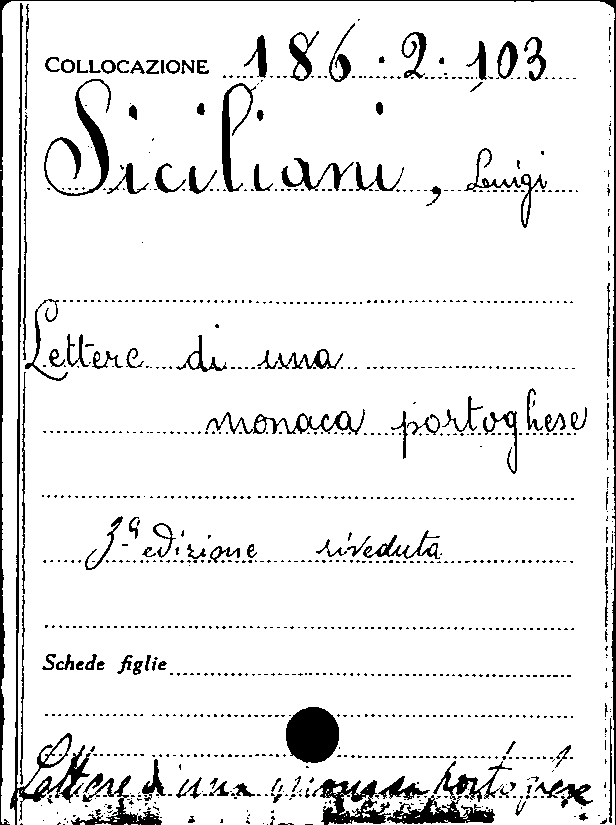 COLLOCAZIONE 186.2.103
Siciliani, Luigi
Lettere di una
monaca portoghese
3ª edizione riveduta
Schede figlie
Lettere di una monaca portoghese